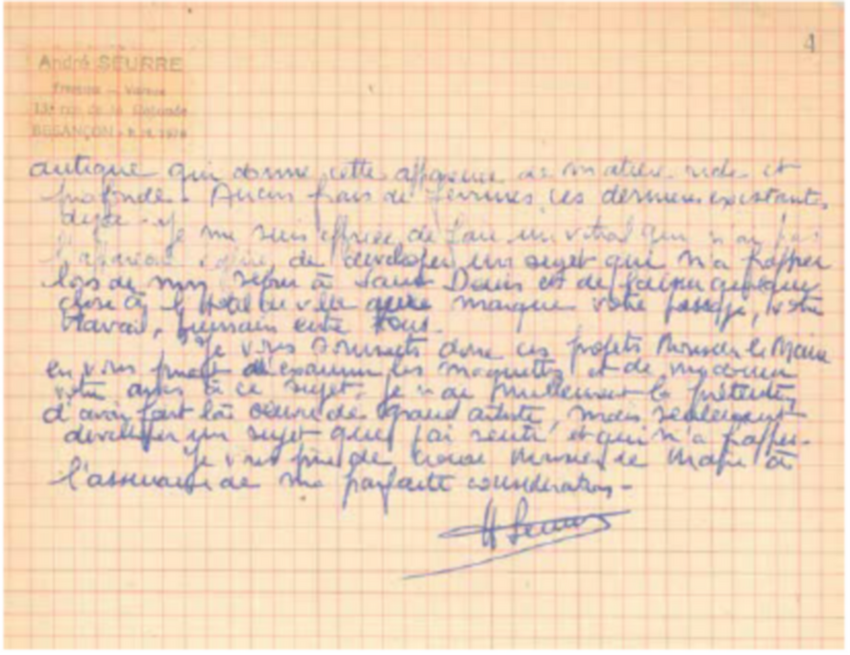 4
André SEURRE
BESANÇON
antique qui donne cette apparence de matière rude et
profonde. Aucun frais de ferrures, ces dernières existantes
déjà. -
Je me suis efforcé de faire un vitrail qui n'a pas
de développer un sujet qui m'a frappé
lors de mon séjour à Saint Denis et de faire quelque
chose à l'Hôtel de ville qui marque votre passage, votre
travail, humain entre tous.
Je vous soumets donc ces projets Monsieur le Maire
en vous priant de examiner les maquettes et de me donner
votre à ce sujet. Je n'ai nullement la prétention
d'avoir fait là oeuvre de grand artiste, mais seulement
développer un sujet que j'ai senti et qui m'a frappé.
Je vous prie de croire Monsieur le Maire à
l'assurance de ma parfaite considération -